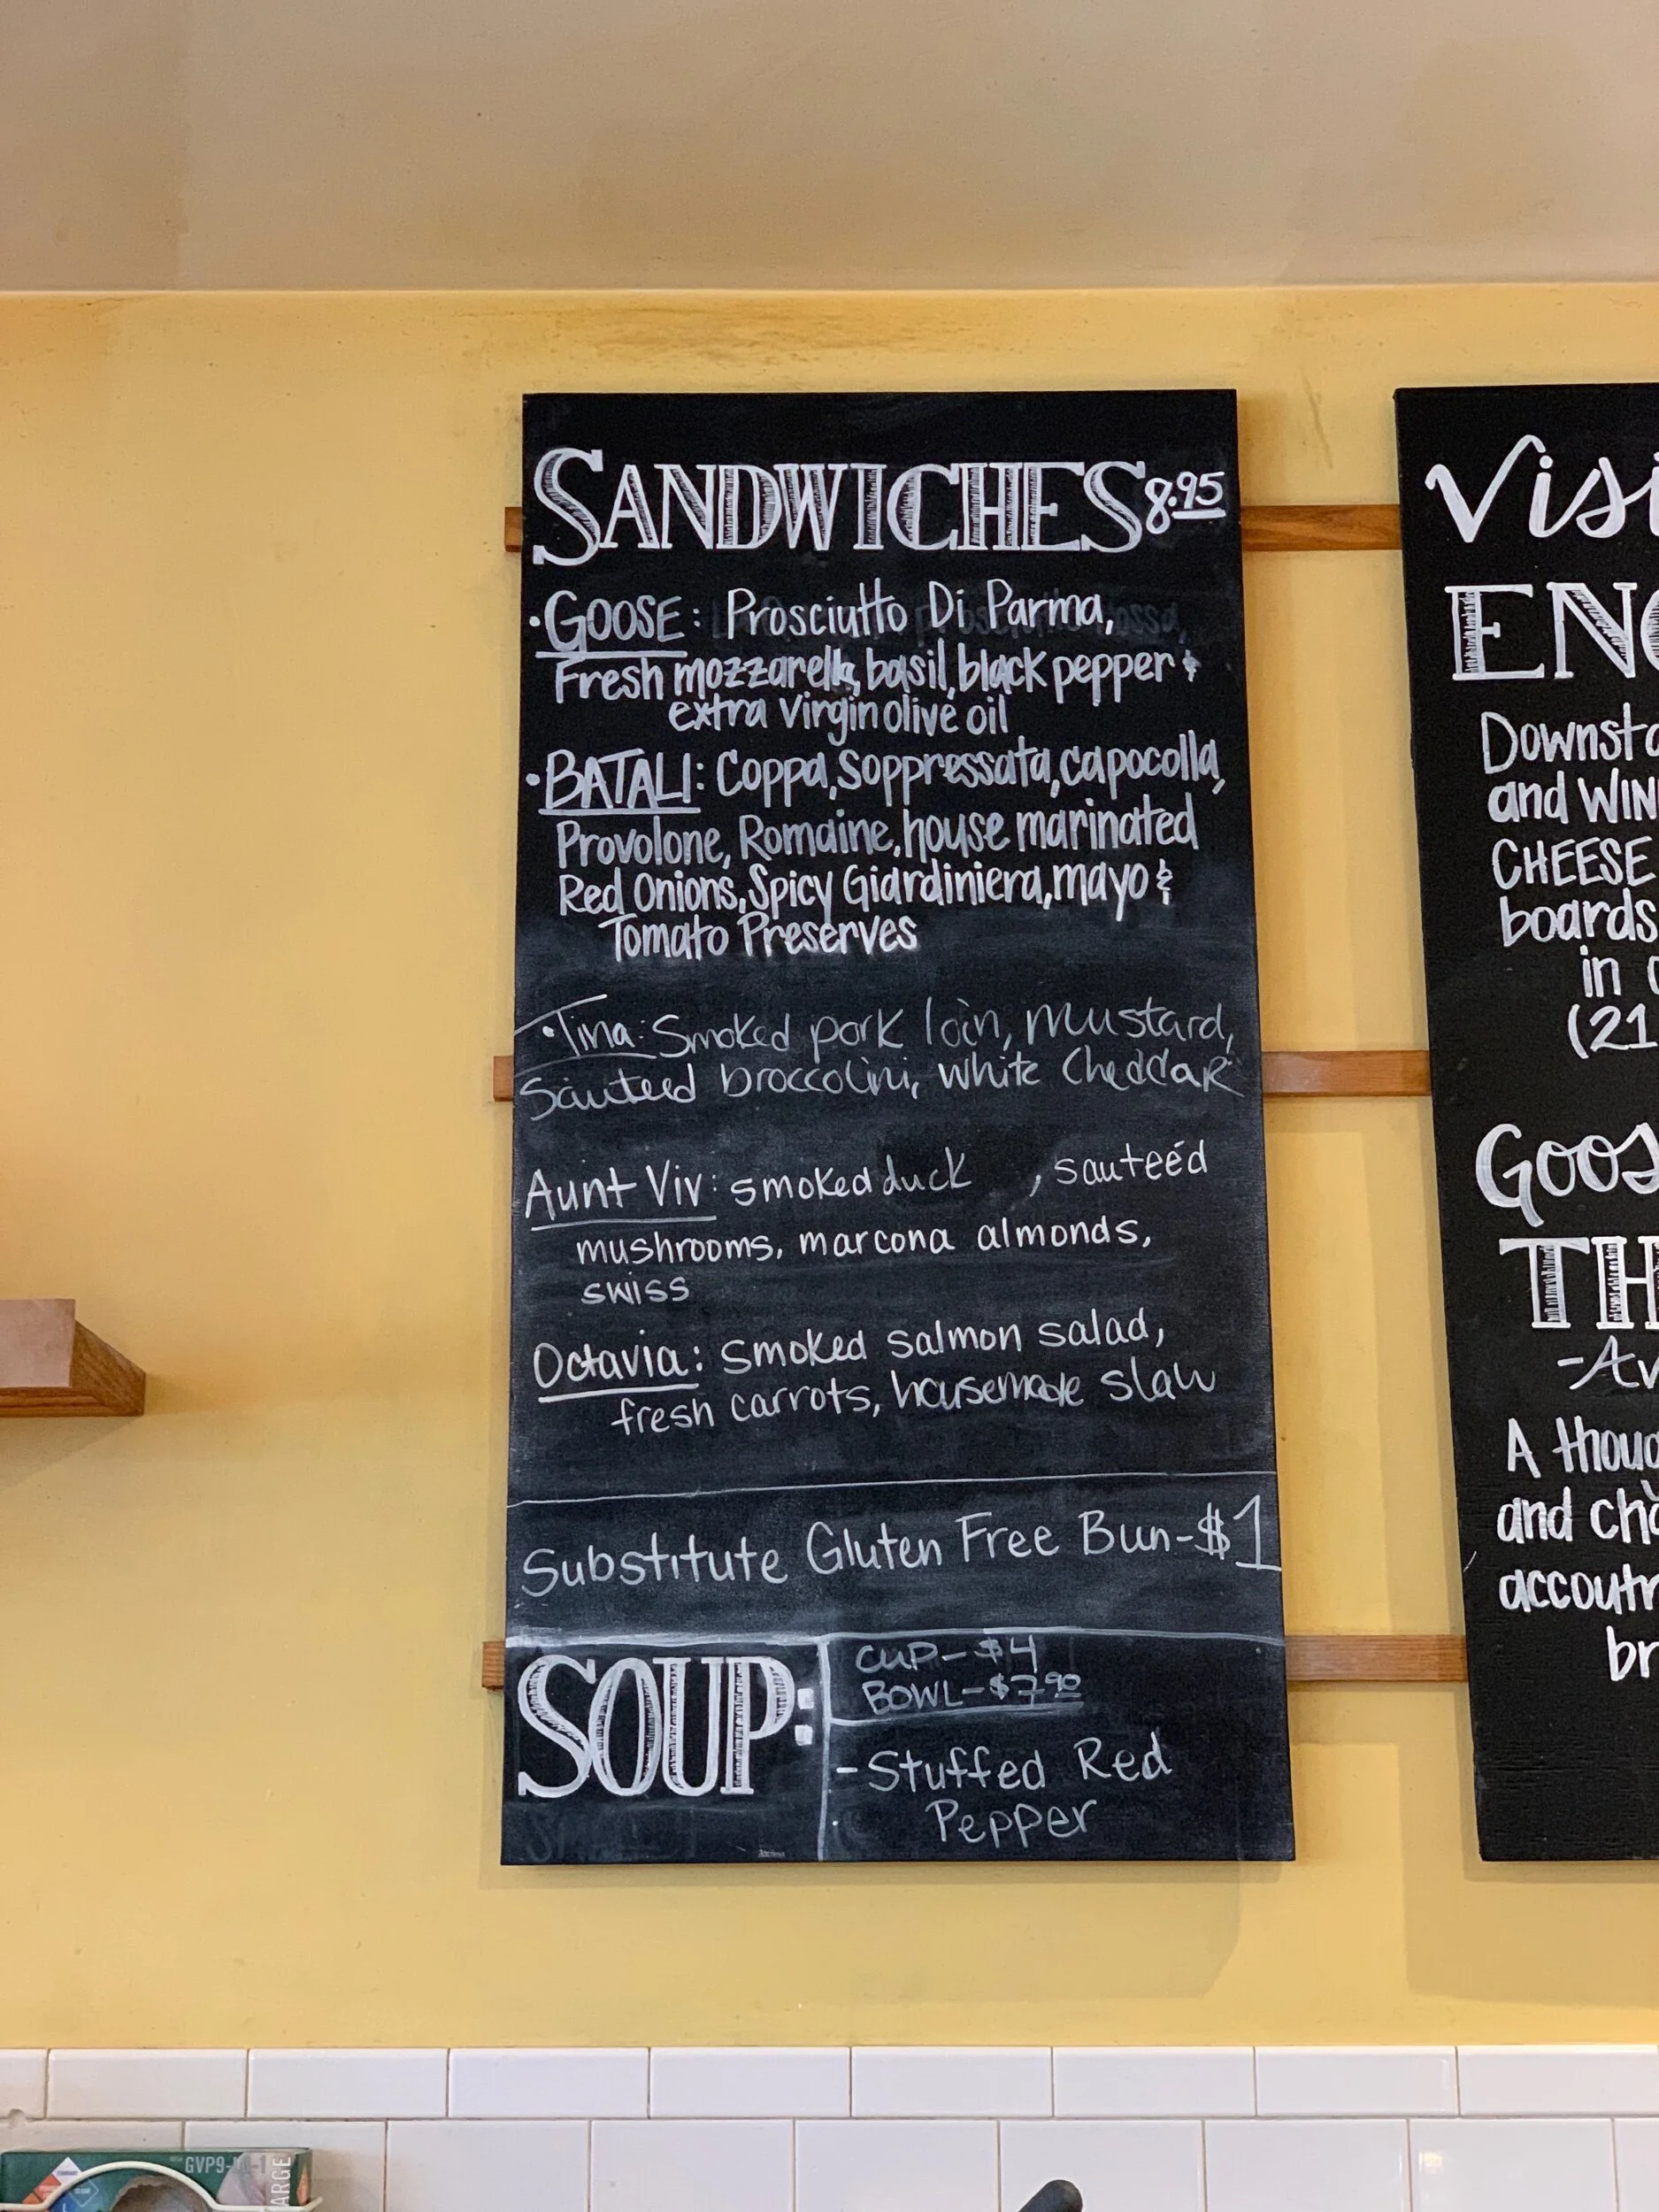 SANDWICHES 8.95
• GOOSE: Prosciutto Di Parma,
Fresh mozzarella, basil, black pepper &
extra virgin olive oil
• BATALI: Coppa, Soppressata, capocolla,
Provolone, Romaine, house marinated
Red Onions, Spicy Giardiniera, mayo &
Tomato Preserves
• Tina: Smoked pork loin, mustard,
Sauteed broccolini, white cheddar
Aunt Viv: smoked duck , sauteéd
mushrooms, marcona almonds,
swiss
Octavia: smoked salmon salad,
fresh carrots, housemade slaw
Substitute Gluten Free Bun-$1
SOUP:
CUP-$4
BOWL-$7.90
-Stuffed Red
Pepper
Visi
ENO
Downsta
and WIN
CHEESE
boards
in
(21
Goos
TH
-Av
A thoug
and
accoutr
br
GVP9-
ARGE